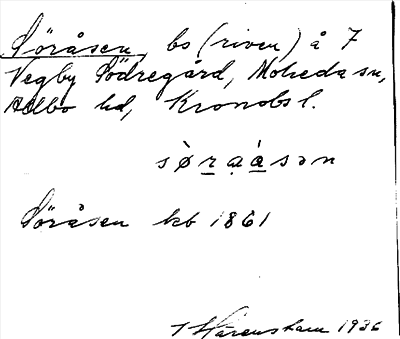 Söråsen, bs (riven) å 7
Vegby Södregård, Moheda sn,
Allbo hd, Kronobs l.
sø̀r̲ạá̲sən
Söråsen kb 1861
1936